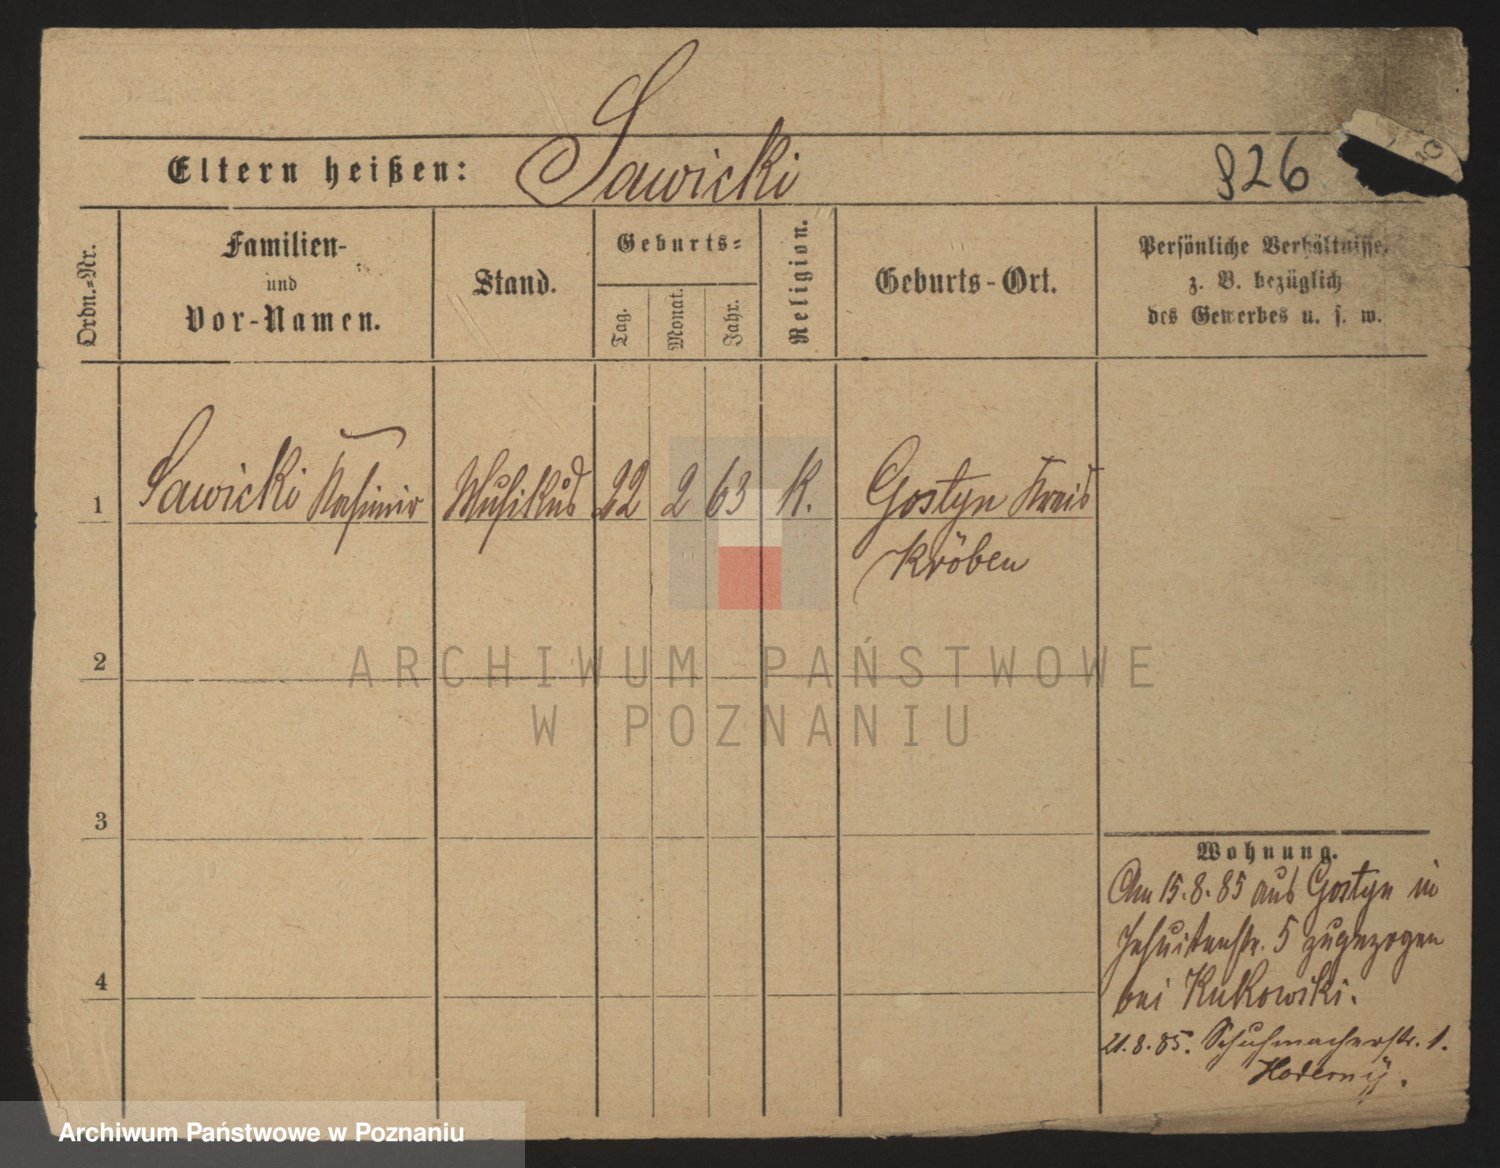 Sawicki
Eltern heißen:
826
Ordn.-Nr.
Familien-
und
Vor-Namen.
Stand.
Geburts-
Tag.
Monat.
Jahr.
Religion.
Geburts-Ort.
Persönliche Verhältnisse,
z. B. bezüglich
des Gewerbes u. s. w.
1 Sawicki Kasimir Musikus 22 2 63 K. Gostyn Kreis
Kröben
2
ARCHIWUM PAŃSTWOWE
W POZNANIU
3
Wohnung.
Am 15.8.85 aus Gostyn in
Jesuitenstr. 5 zugezogen
bei Kukowski.
4
21.8.85. Schuhmacherstr. 1.
Archiwum Państwowe w Poznaniu